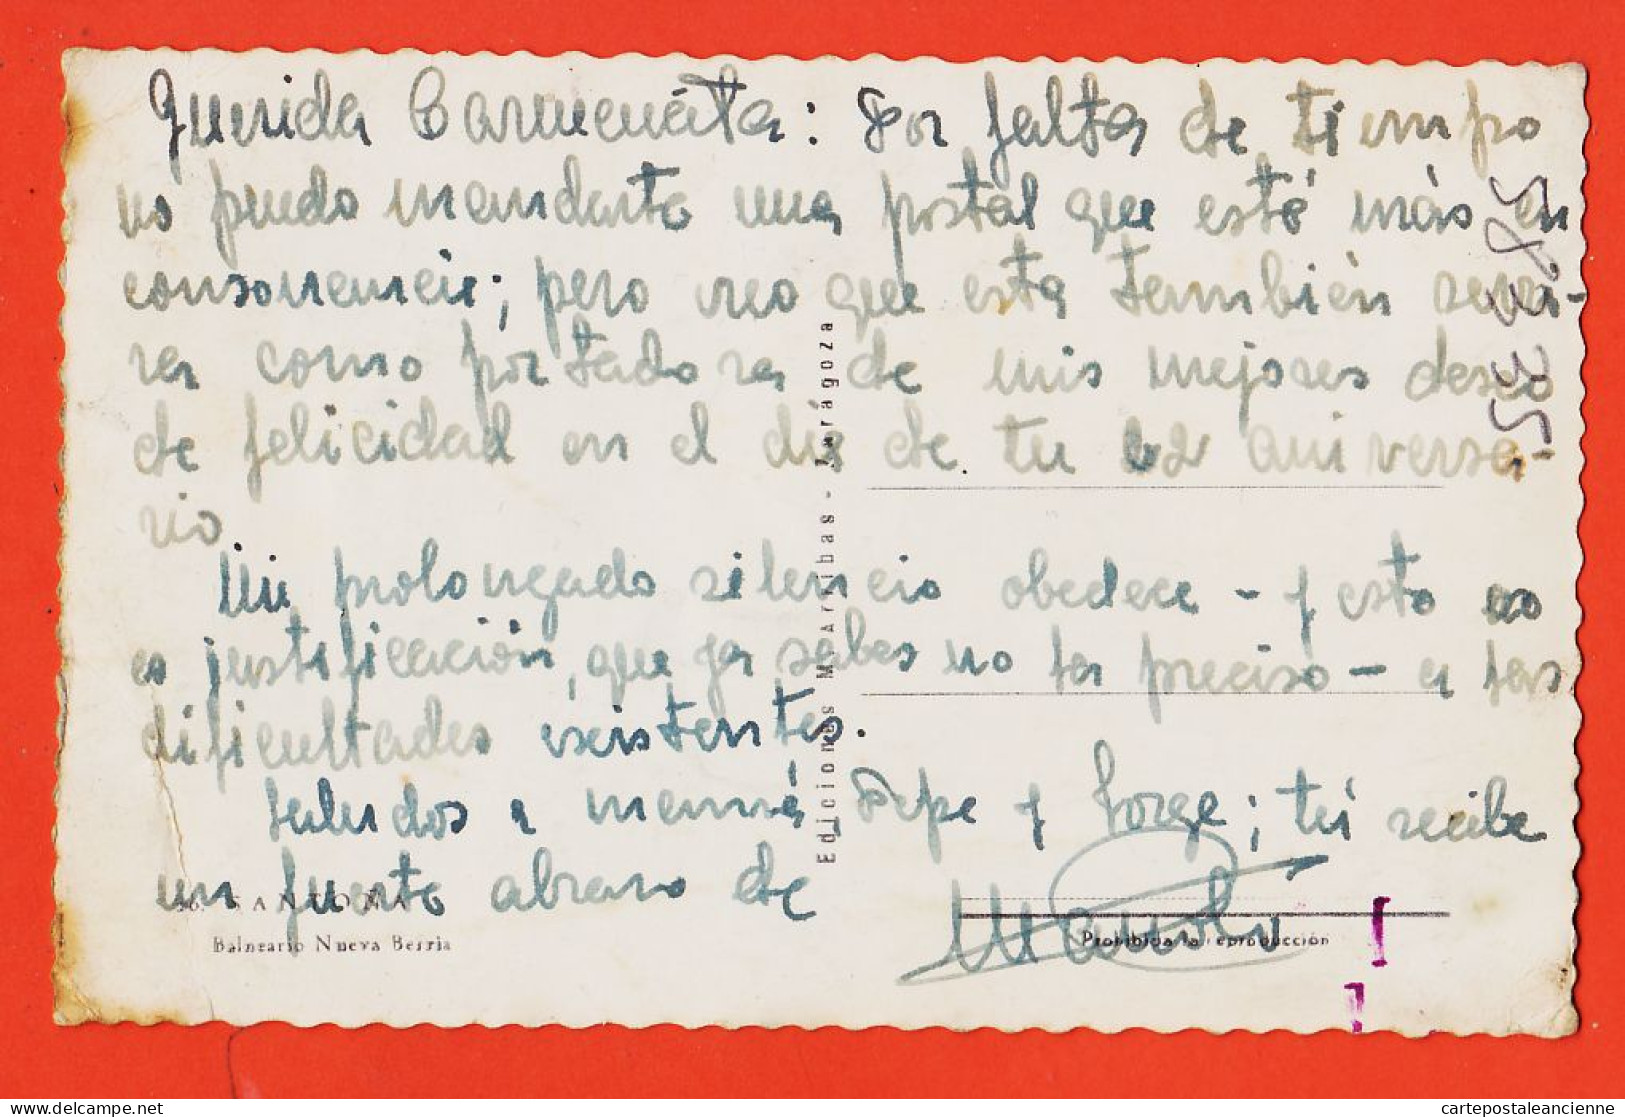 Querida Carmencita: Por falta de tiempo
no puedo mandarte una postal que esté más en
consonancia; pero creo que esta también servi-
ra como portadora de mis mejores deseo
de felicidad en el dia de tu 22 aniversa
rio
Mi prolongado silencio obedece - y esto no
es justificación, que ya sabes no la preciso - a las
dificultades existentes.
Saludos a mamá, Pepe y Jorge; tú recibe
un fuerte abrazo de
Manolo
58335
Ediciones M. Arribas - Zaragoza
36. SANTOÑA
Balneario Nueva Berria
Prohibida la reproducción
delcampe.net
cartepostaleancienne